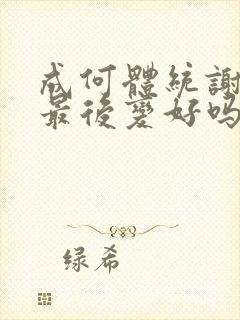 成何體統謝
最後變好吗
绿希